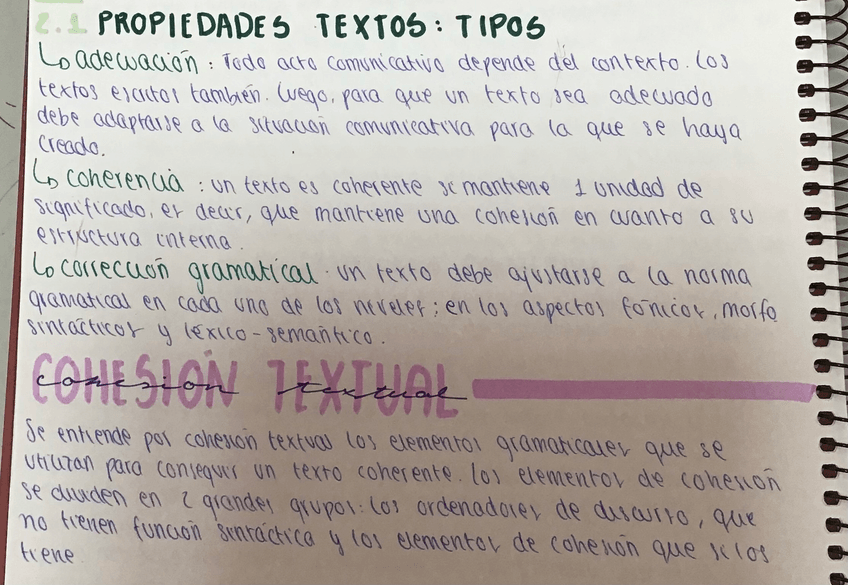 2.1 PROPIEDADES TEXTOS: TIPOS
↳ adecuación: Todo acto comunicativo depende del contexto. Los
textos escritos también. Luego, para que un texto sea adecuado
debe adaptarse a la situación comunicativa para la que se haya
creado.
↳ coherencia: un texto es coherente si mantiene 1 unidad de
significado, es decir, que mantiene una cohesión en cuanto a su
estructura interna.
↳ corrección gramatical. un texto debe ajustarse a la norma
gramatical en cada uno de los niveles; en los aspectos fónicos, morfo
sintácticos y léxico-semántico.
COHESIÓN TEXTUAL
cohesion textual
Se entiende por cohesión textual los elementos gramaticales que se
utilizan para conseguir un texto coherente. Los elementos de cohesión
se dividen en 2 grandes grupos: los ordenadores de discurso, que
no tienen función sintáctica y los elementos de cohesión que si los
tiene